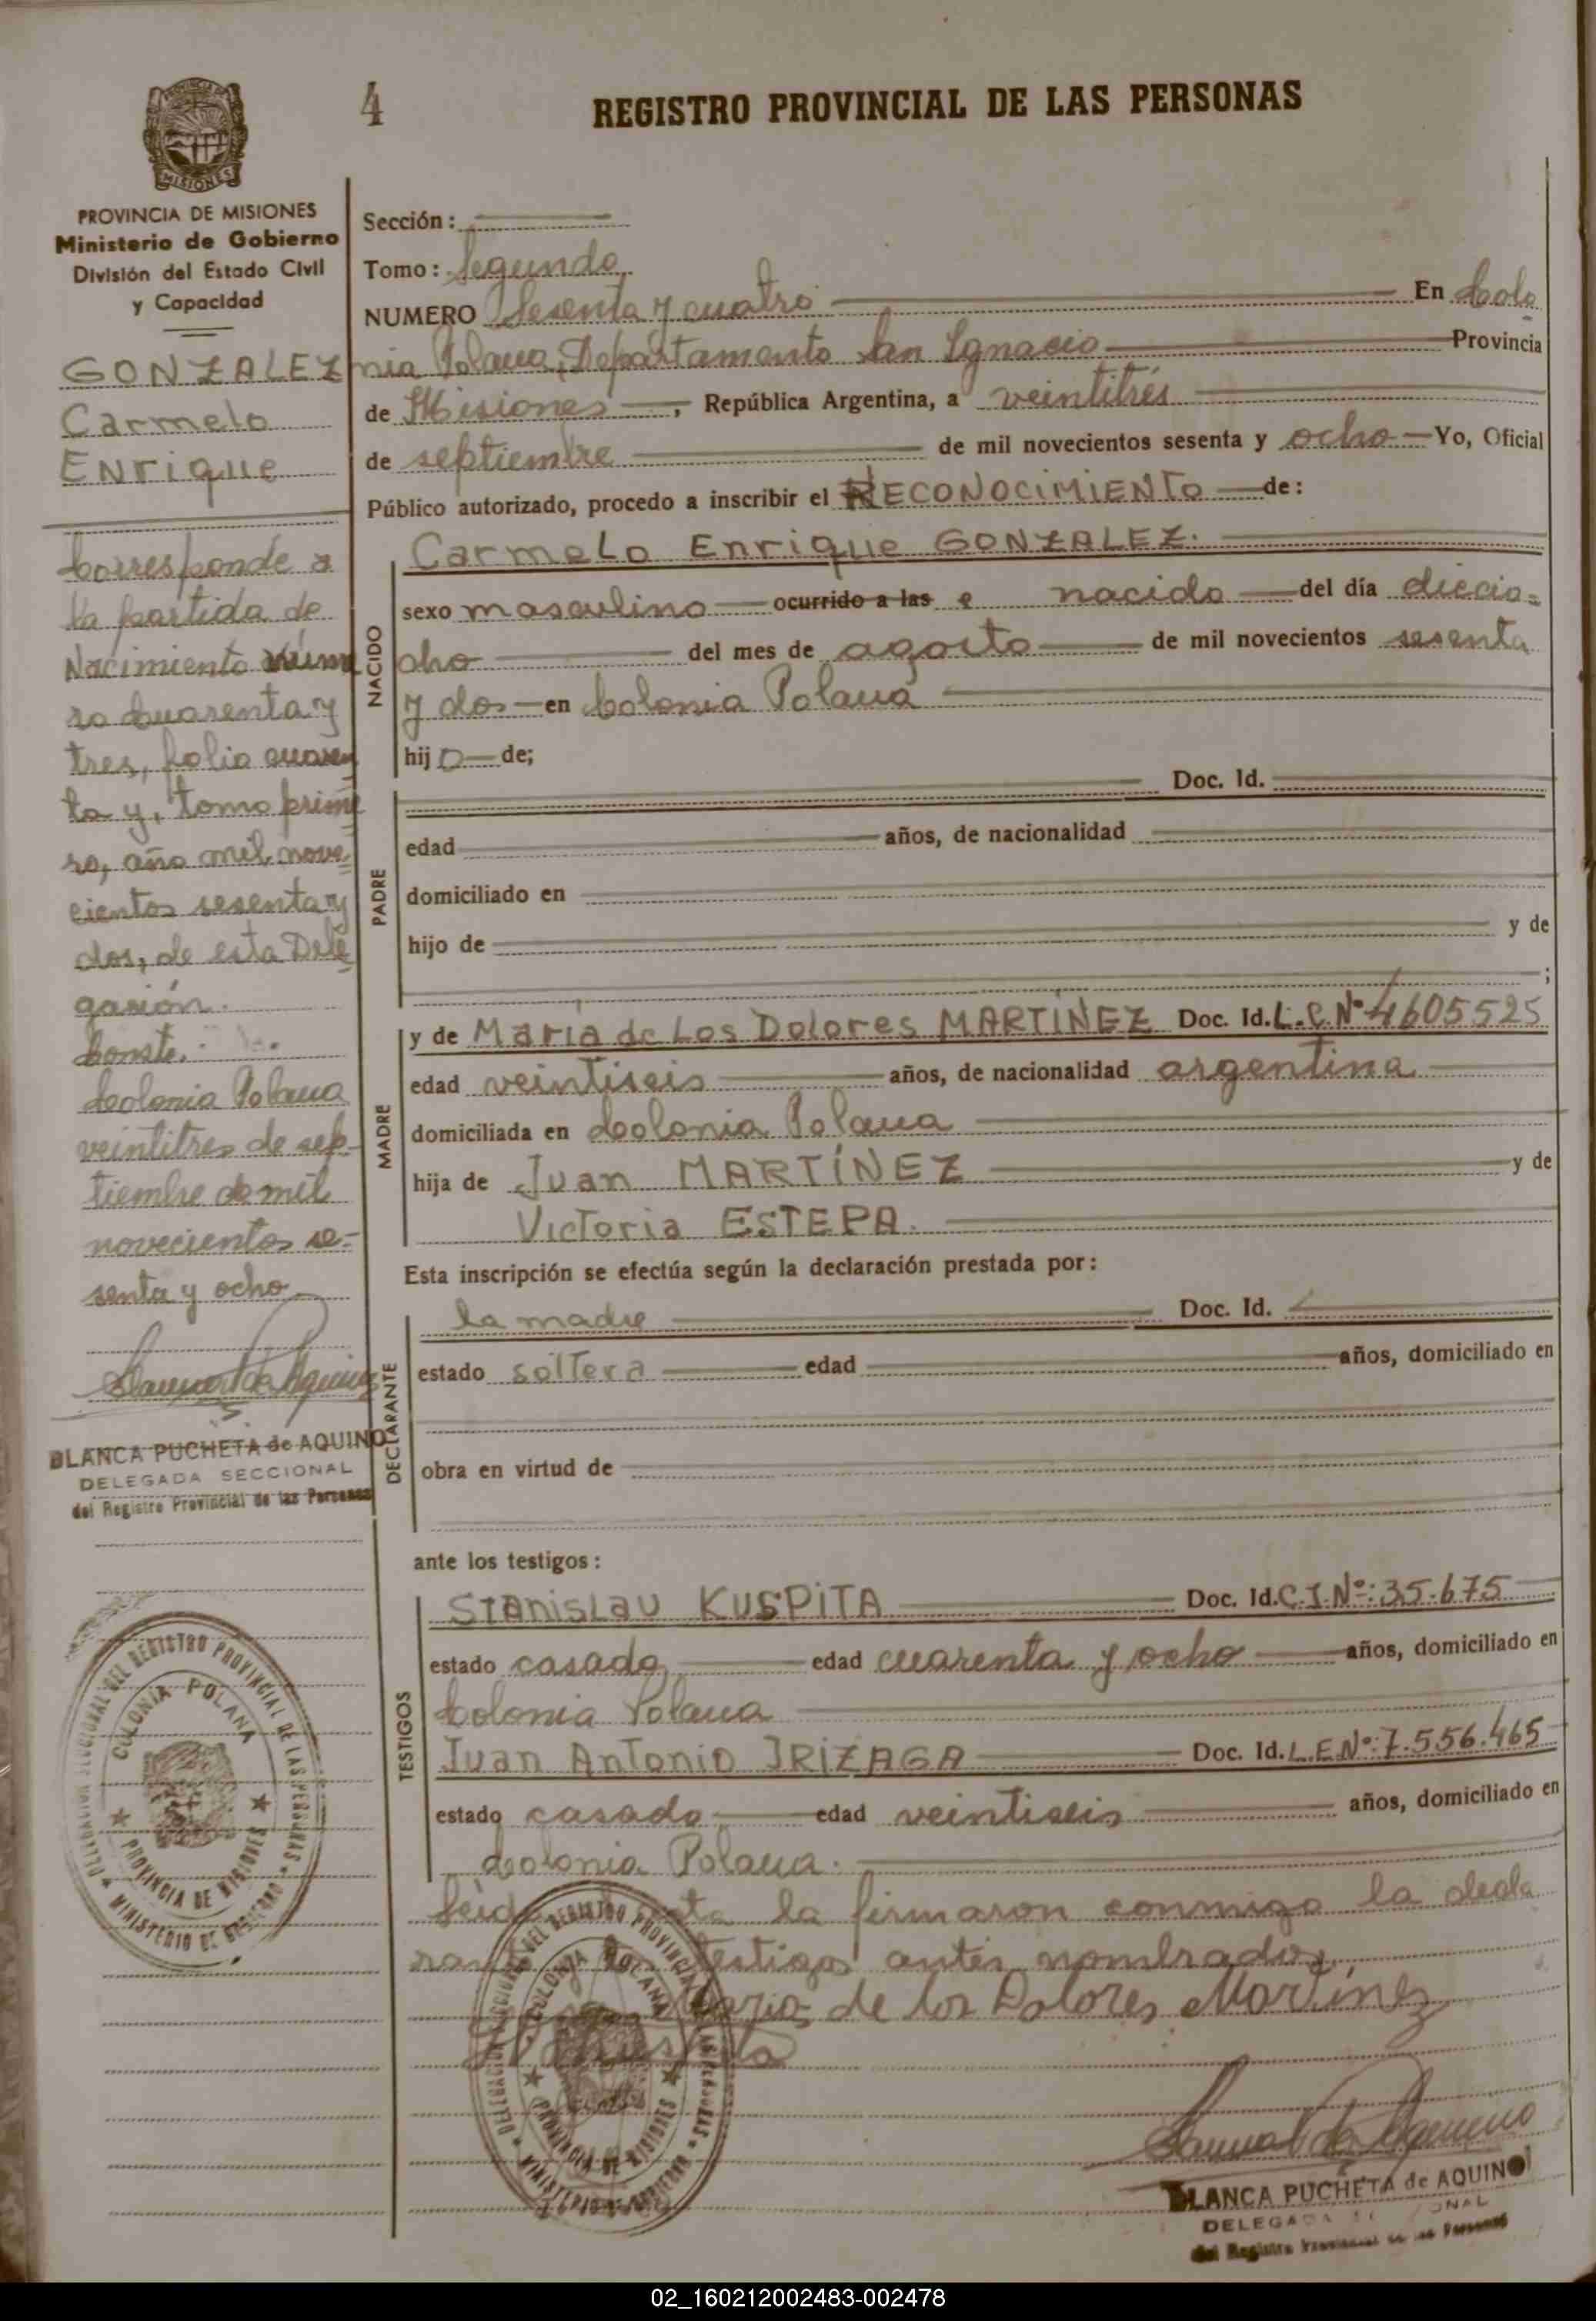 4
REGISTRO PROVINCIAL DE LAS PERSONAS
MISIONES
PROVINCIA DE MISIONES
Ministerio de Gobierno
División del Estado Civil
y Capacidad
GONZALEZ
Carmelo
Enrique
Corresponde a
la partida de
Nacimiento núme
ro cuarenta y
tres, folio cuaren
ta y, tomo prime
ro, año mil nove
cientos sesenta y
dos, de esta Dele
gación.
Conste.
Colonia Polana
veintitres de sep-
tiembre de mil
novecientos se-
senta y ocho
BLANCA PUCHETA de AQUINO
DELEGADA SECCIONAL
del Registro Provincial de las Personas
DELEGACION SECCIONAL DEL REGISTRO PROVINCIAL DE LAS PERSONAS
COLONIA POLANA
PROVINCIA DE MISIONES
MINISTERIO DE GOBIERNO
Sección:
Tomo: Segundo
NUMERO Sesenta y cuatro En Colo
nia Polana, Departamento San Ignacio Provincia
de Misiones, República Argentina, a veintitrés
de septiembre de mil novecientos sesenta y ocho Yo, Oficial
Público autorizado, procedo a inscribir el RECONOCIMIENTO de:
NACIDO
Carmelo Enrique GONZALEZ.
sexo masculino ocurrido a las e nacido del día diecio=
cho del mes de agosto de mil novecientos sesenta
y dos en Colonia Polana
hijo de;
PADRE
Doc. Id.
edad años, de nacionalidad
domiciliado en
hijo de y de
;
MADRE
y de María de Los Dolores MARTÍNEZ Doc. Id. L.C.Nº 4605525
edad veintiseis años, de nacionalidad argentina
domiciliada en Colonia Polana
hija de Juan MARTÍNEZ y de
Victoria ESTEPA.
Esta inscripción se efectúa según la declaración prestada por:
DECLARANTE
la madre Doc. Id.
estado soltera edad años, domiciliado en
obra en virtud de
ante los testigos:
TESTIGOS
Stanislau KUSPITA Doc. Id. C.I.Nº: 35.675
estado casado edad cuarenta y ocho años, domiciliado en
Colonia Polana
Juan Antonio IRIZAGA Doc. Id. L.E.Nº: 7.556.465
estado casado edad veintiseis años, domiciliado en
Colonia Polana.
Leída acta la firmaron conmigo la decla
rante y los testigos antes nombrados
Maria de los Dolores Martínez
DELEGACION SECCIONAL DEL REGISTRO PROVINCIAL DE LAS PERSONAS
COLONIA POLANA
PROVINCIA DE MISIONES
MINISTERIO DE GOBIERNO
BLANCA PUCHETA de AQUINO
DELEGADA SECCIONAL
del Registro Provincial de las Personas
02_160212002483-002478